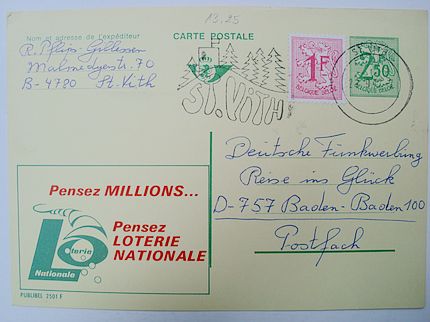 13.25
Nom et adresse de l'expéditeur
CARTE POSTALE
Malmedyerstr. 70
B-4780 St-Vith
ST. VITH
1F
BELGIQUE-BELGIE
2F50
BELGIQUE BELGIE
Deutsche Funkwerbung
Reise ins Glück
D-757 Baden-Baden 100
Postfach
Pensez MILLIONS...
Pensez
LOTERIE
NATIONALE
Loterie
Nationale
PUBLIBEL 2501 F